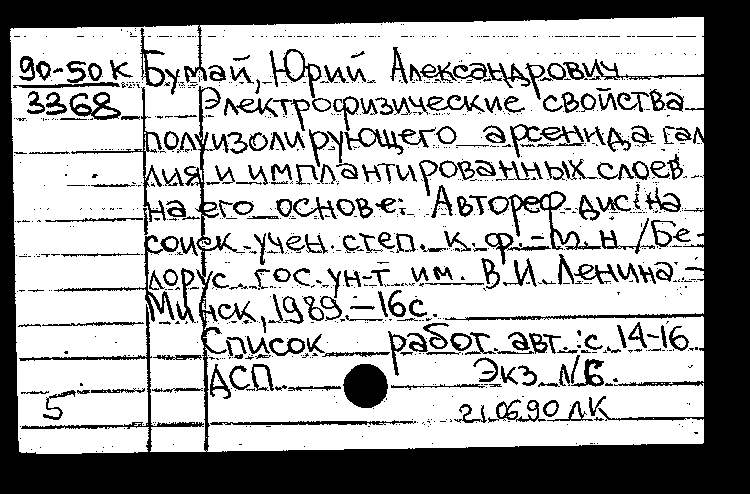 90-50К Бутай, Юрий Александрович
3368 Электрофизические свойства
полуизолирующего арсенида гал
лия и имплантированных слоев
на его основе: Автореф дис. на
соиск. учен. степ. к. ф.-м. н / Бе-
лорус. гос. ун-т им. В. И. Ленина –
Минск, 1989. – 16 с.
Список работ авт.: с. 14-16
ДСП Экз. №6.
5 21.06.90 ЛК